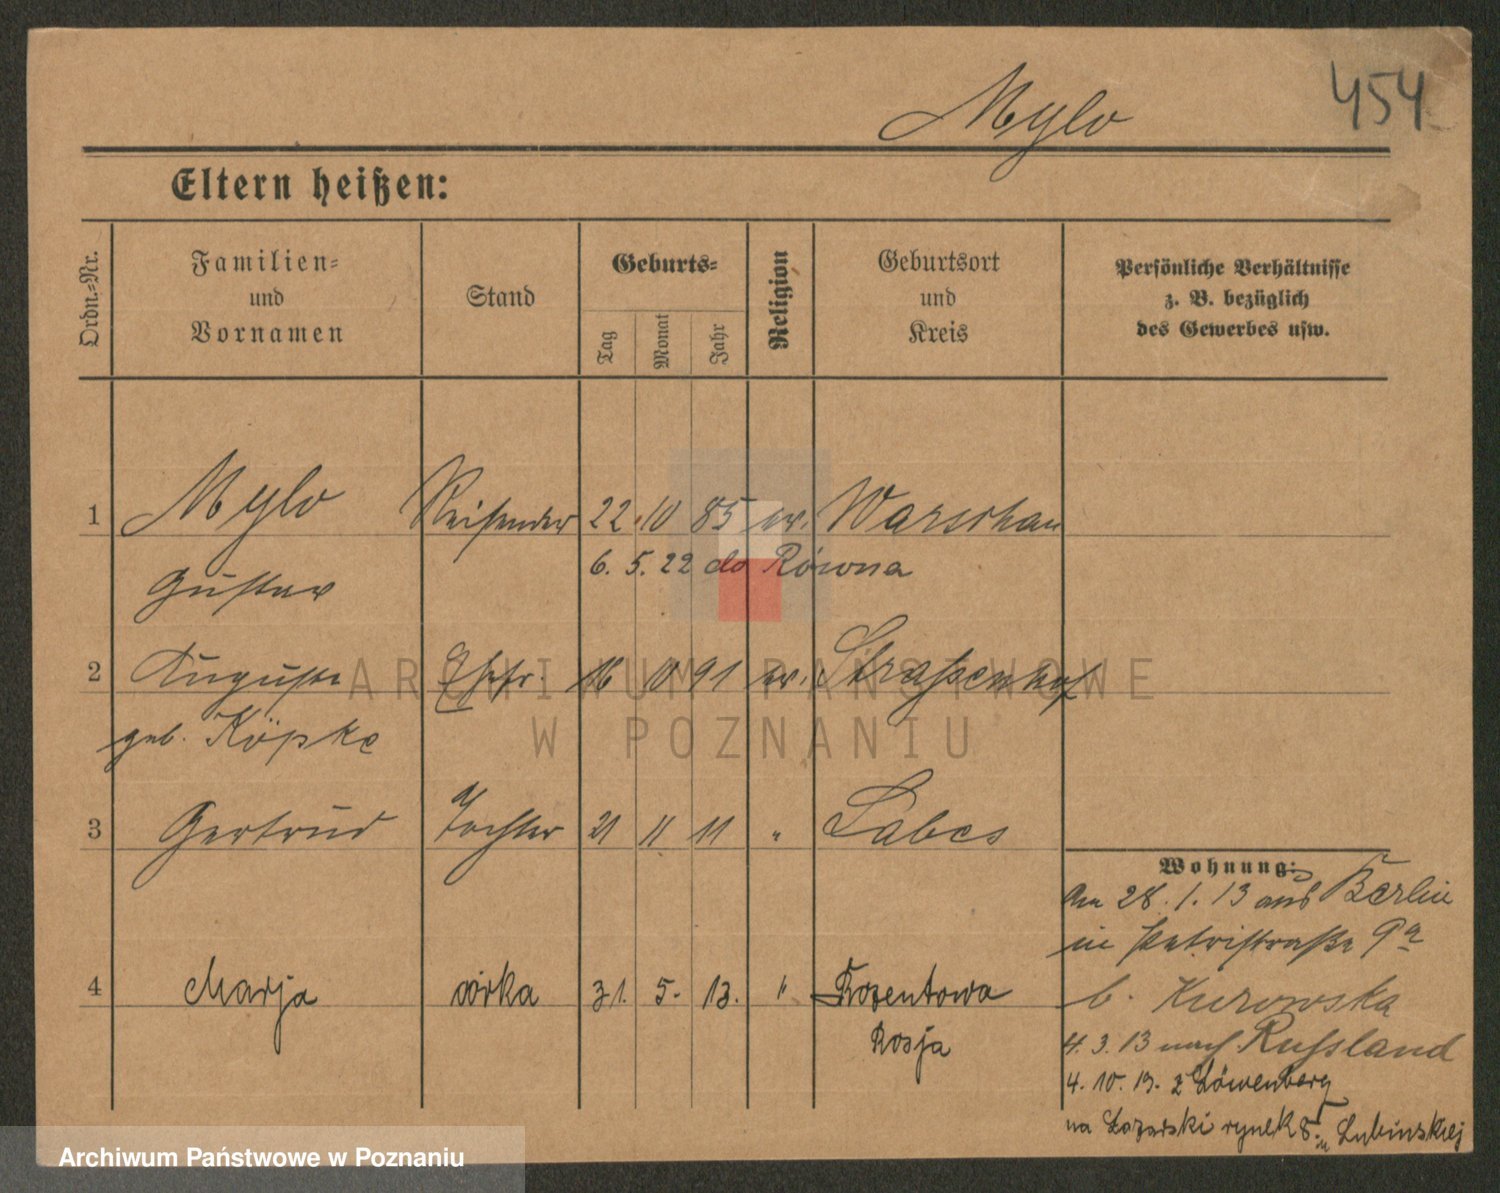 Mylo
454
Eltern heißen:
Ordn.=Nr.
Familien=
und
Vornamen
Stand
Geburts=
Tag
Monat
Jahr
Religion
Geburtsort
und
Kreis
Persönliche Verhältnisse
z. B. bezüglich
des Gewerbes usw.
1 Mylo Reisender 22. 10 85 ev. Warschau
6. 5. 22 do Równa
Gustav
2 Auguste Ehefr. 16 10 91 ev. Straßenhof
geb. Köpke
3 Gertrud Tochter 21 11 11 " Labes
Wohnung:
Am 28. 1. 13 aus Berlin
in Petristraße 9a
4 Marja córka 31. 5. 13. "
b. Kurowska
Rosja
4. 3. 13 nach Russland
4. 10. 19. z Löwenberg
na Łazarski rynek 5 Lubinskiej
ARCHIWUM PAŃSTWOWE
W POZNANIU
Archiwum Państwowe w Poznaniu